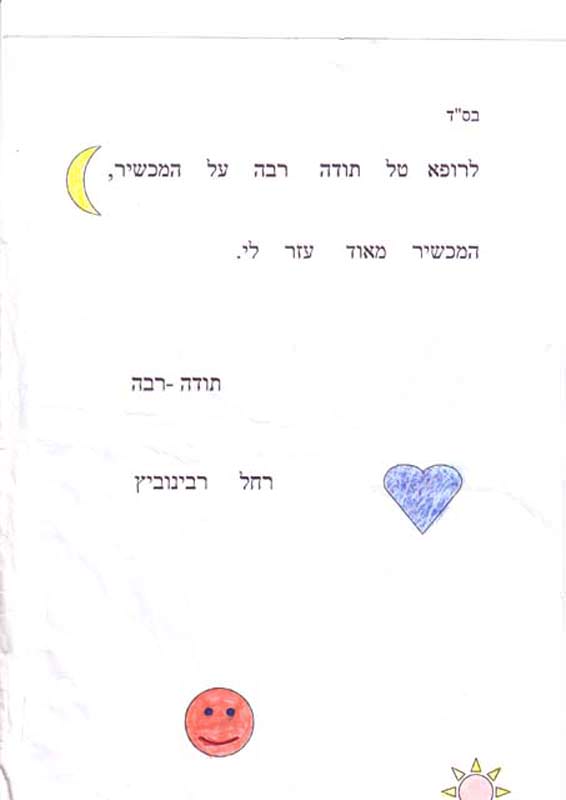 בס"ד
לרופא טל תודה רבה על המכשיר,
המכשיר מאוד עזר לי.
תודה -רבה
רחל רבינוביץ